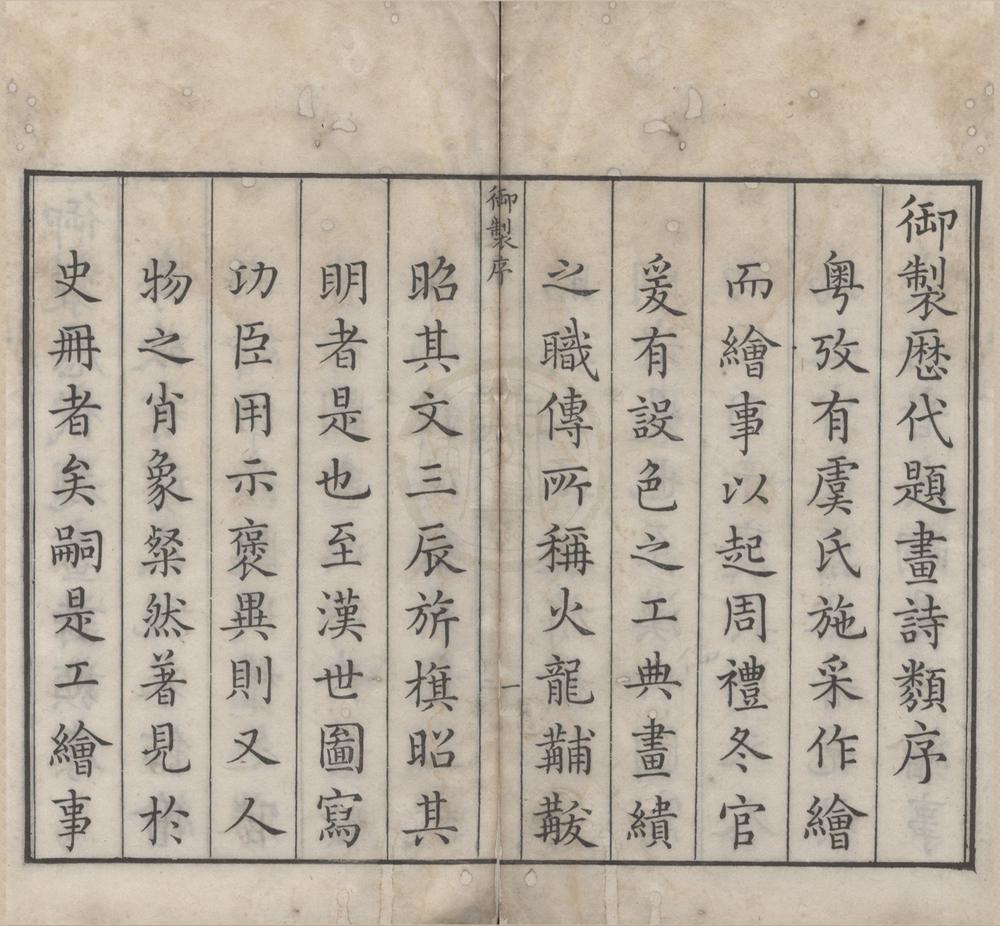 御製歷代題畫詩類序
粤攷有虞氏施采作繪
而繪事以起周禮冬官
爰有設色之工典畫繢
之職傳所稱火龍黼黻
御製序
一
昭其文三辰旂旗昭其
明者是也至漢世圖寫
功臣用示褒異則又人
物之肖象粲然著見於
史冊者矣嗣是工繪事